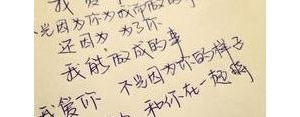 我爱
光因为你为我而做的事
还因为 为了你
我能做成的事
我爱你 不光因为你的样子
和你在一起时